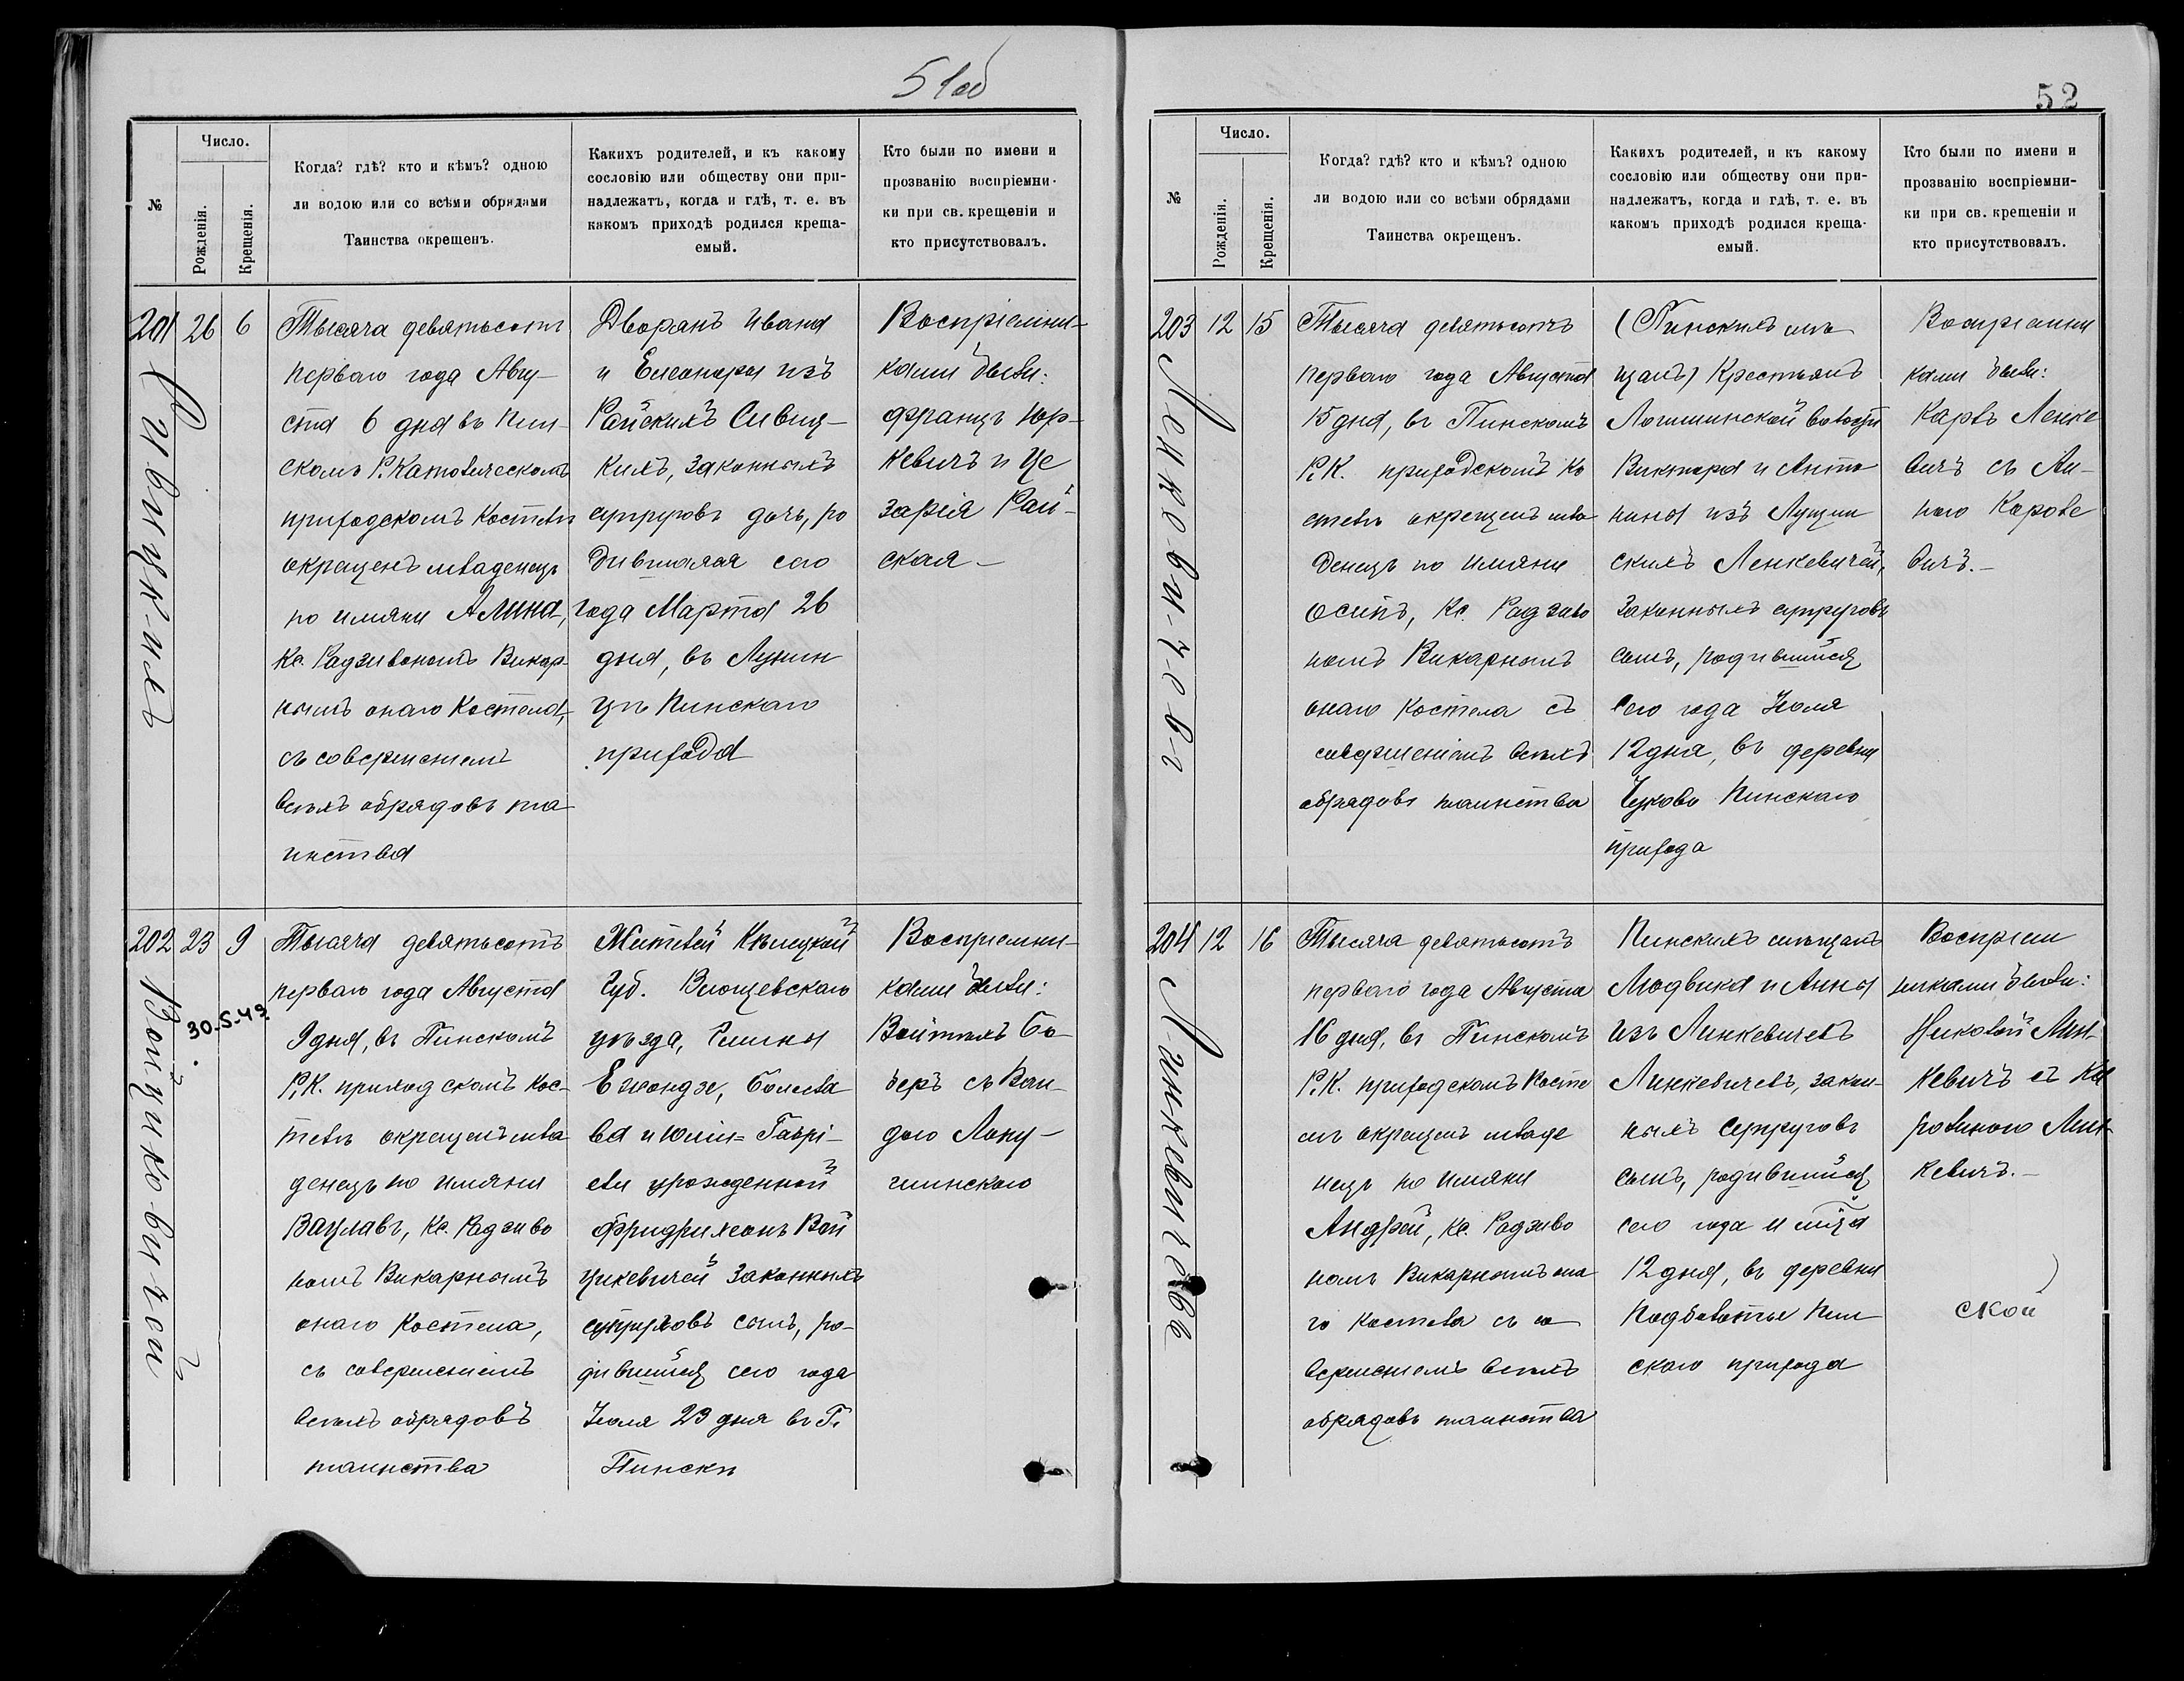 51об
№
Число.
Рожденія.
Крещенія.
Когда? гдѣ? кто и кѣмъ? одною
ли водою или со всѣми обрядами
Таинства окрещенъ.
Какихъ родителей, и къ какому
сословію или обществу они при-
надлежатъ, когда и гдѣ, т. е. въ
какомъ приходѣ родился креща-
емый.
Кто были по имени и
прозванію воспріемни-
ки при св. крещеніи и
кто присутствовалъ.
201 26 6
Сивицкихъ
Тысяча девятьсотъ
перваго года Авгу-
ста 6 дня въ Пин-
скомъ Р. Католическомъ
приходскомъ костелѣ
окрещенъ младенецъ
по имяни Алина,
Кс. Радзивономъ Викар-
нымъ онаго Костела,
съ совершеніемъ
всѣхъ обрядовъ та
инства
Дворянъ Ивана
и Елеоноры изъ
Райскихъ Сивиц-
кихъ, законныхъ
супруговъ дочь, ро
дившаяся сего
года Марта 26
дня, въ Лунин
цѣ Пинскаго
прихода
Воспріемни-
ками были:
Францъ Юр-
кевичъ и Це
зарія Рай-
ская-
202 23 9
30-5-49
Войцикевичей
Тысяча девятьсотъ
перваго года Августа
9 дня, въ Пинскомъ
Р. К. приходскомъ Кос-
телѣ окрещенъ мла
денецъ по имяни
Вацлавъ, Кс. Радзиво
номъ Викарнымъ
онаго Костела,
съ совершеніемъ
всѣхъ обрядовъ
таинства
Жителей Кѣлецкой
Губ. Влощевскаго
уѣзда, Гмины
Болесла
ва и Юліи-Габрі-
ели урожденной
Фридрихсонъ Вой
цикевичей законныхъ
супруговъ сынъ, ро-
дившійся сего года
Іюля 23 дня въ Г.
Пинскѣ
Воспріемни-
ками были:
Войтехъ Бо-
беръ съ Ван-
дою Лопу-
шинскою
52
№
Число.
Рожденія.
Крещенія.
Когда? гдѣ? кто и кѣмъ? одною
ли водою или со всѣми обрядами
Таинства окрещенъ.
Какихъ родителей, и къ какому
сословію или обществу они при-
надлежатъ, когда и гдѣ, т. е. въ
какомъ приходѣ родился креща-
емый.
Кто были по имени и
прозванію воспріемни-
ки при св. крещеніи и
кто присутствовалъ.
203 12 15
Ленкевичовъ
Тысяча девятьсотъ
перваго года Августа
15 дня, въ Пинскомъ
Р. К. приходскомъ Ко
стелѣ окрещенъ мла
денецъ по имяни
Осипъ, Кс. Радзиво
номъ Викарнымъ
онаго Костела съ
совершеніемъ всѣхъ
обрядовъ таинства
(Пинскихъ мѣ
щанъ) Крестьянъ
Логишинской волости
Виктора и Анто
нины изъ Лущин
скихъ Ленкевичей,
законныхъ супруговъ
сынъ, родившійся
сего года Іюля
12 дня, въ деревни
Чухово Пинскаго
прихода
Воспріемни
ками были:
Карлъ Ленке
вичъ съ Ан-
ною Короле
вичъ.-
204 12 16
Линкевичевъ
Тысяча девятьсотъ
перваго года Августа
16 дня, въ Пинскомъ
Р. К. приходскомъ Косте
лѣ окрещенъ младе
нецъ по имяни
Андрей, Кс. Радзиво
номъ Викарнымъ она
го костела съ со
вершеніемъ всѣхъ
обрядовъ таинства
Пинскихъ мѣщанъ
Людвика и Анны
изъ Линкевичевъ
Линкевичевъ, закон-
ныхъ супруговъ
сынъ, родившійся
сего года и мѣца
12 дня, въ деревни
Подболотье Пин
скаго прихода
Воспріем
никами были:
Николай Лин-
кевичъ съ Ка
ролиною Лин-
кевичъ.-
ской